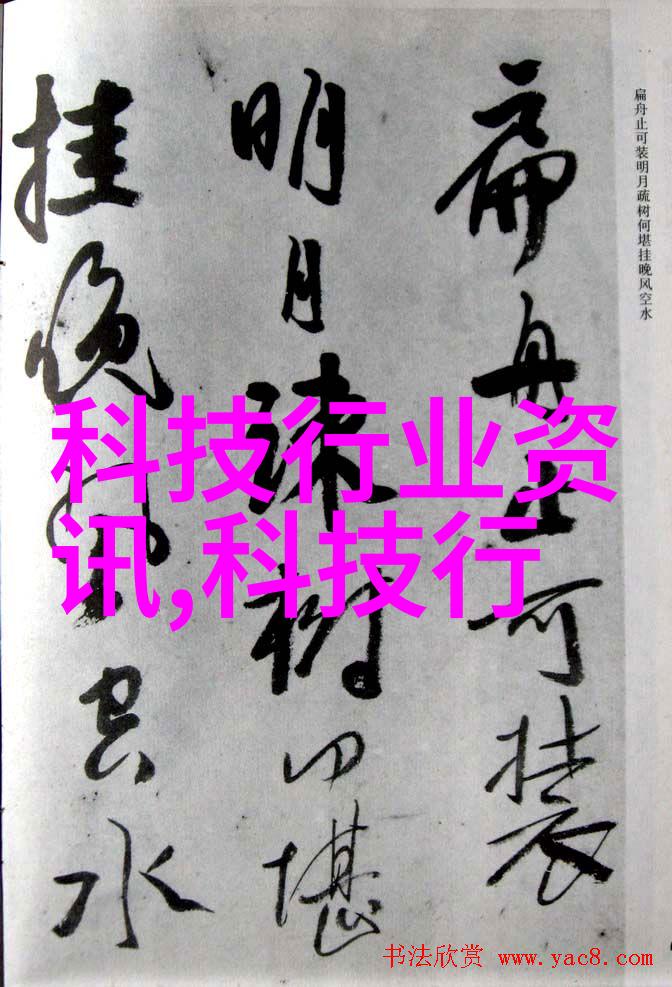 扁舟止可装
明月疏树何堪
挂晚风空水
扁舟止可装明月疏树何堪挂晚风空水
科技行业资
讯,科技行
书法欣赏 www.yac8.com